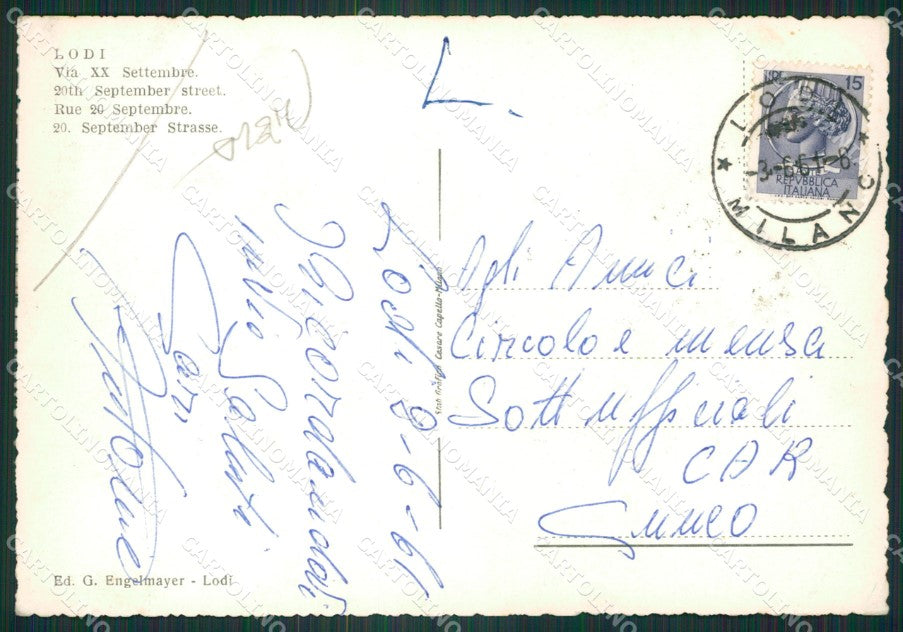 LODI
Via XX Settembre.
20th September street.
Rue 20 Septembre.
20. September Strasse.
L.
LIRE 15
REPVBBLICA
ITALIANA
LODI
MILANO
Lodi 8-6-61
Ricordandovi
invio Saluti
Cari
Stab. Grafico Cesare Capello-Milano
Agli Amici
Circolo e mensa
Sottufficiali
CAR
Cuneo
Ed. G. Engelmayer - Lodi
CARTOLINOMANIA